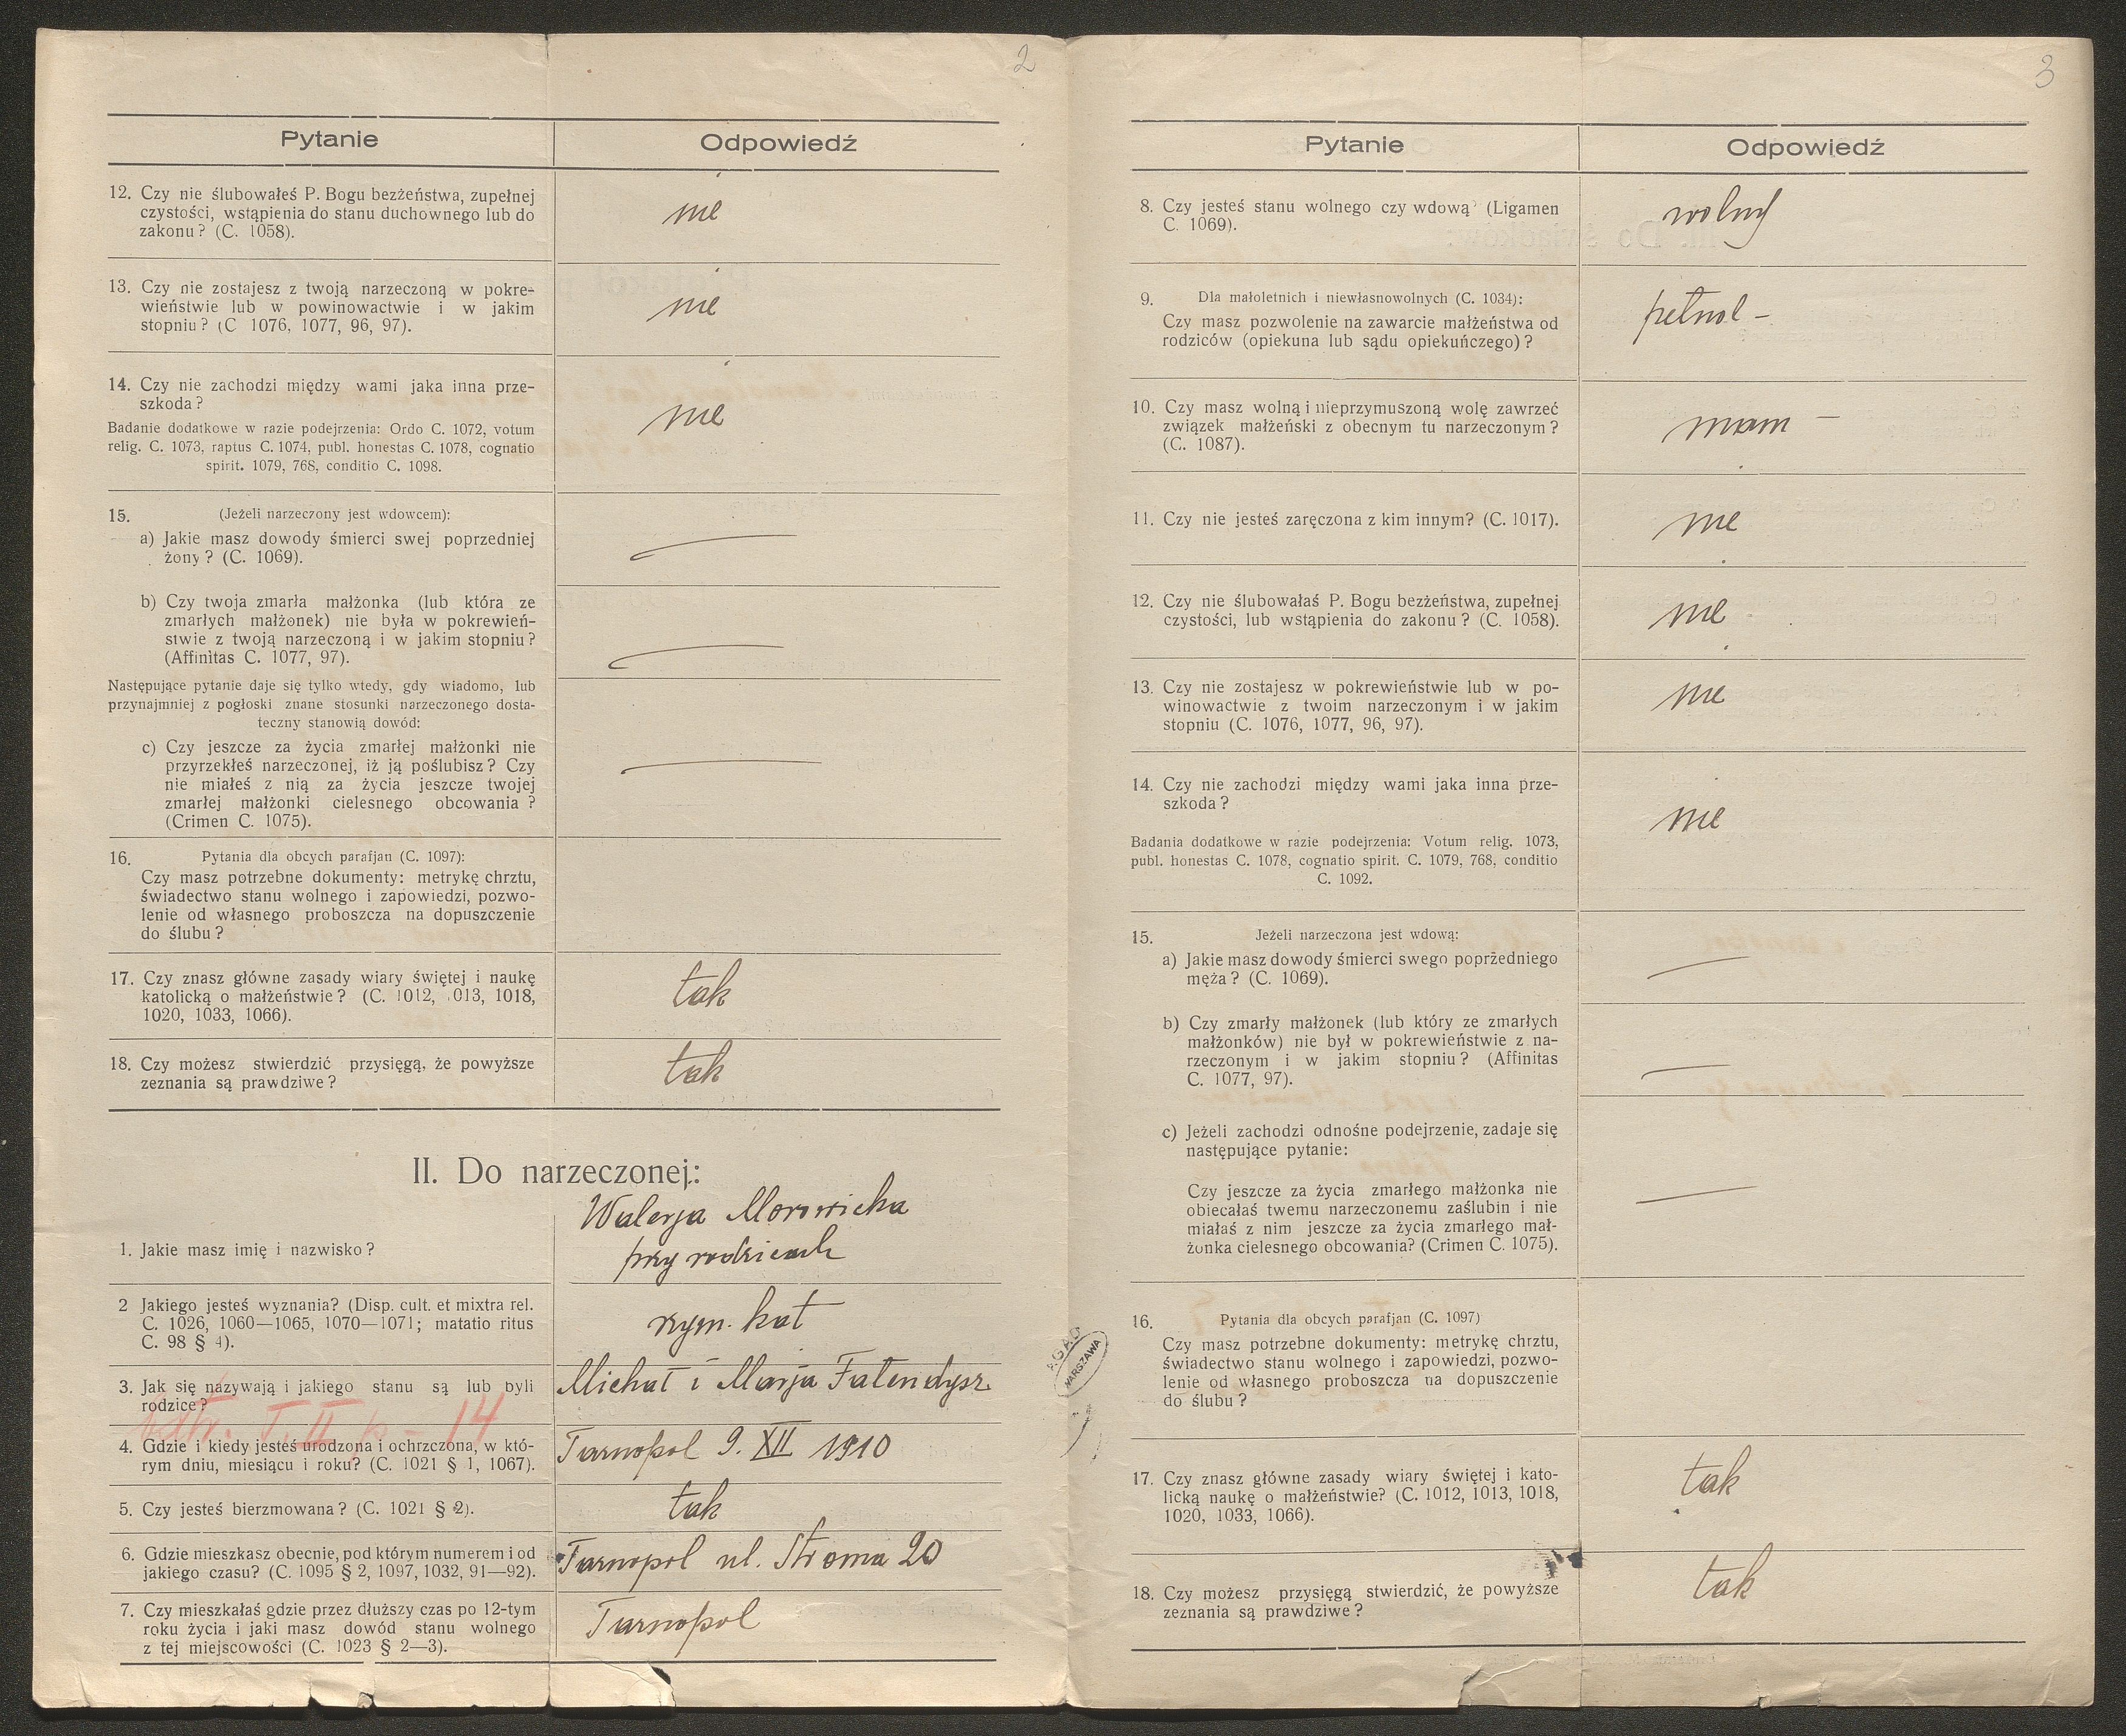 2
Pytanie
Odpowiedź
12. Czy nie ślubowałeś P. Bogu bezżeństwa, zupełnej
czystości, wstąpienia do stanu duchownego lub do
zakonu? (C. 1058).
nie
13. Czy nie zostajesz z twoją narzeczoną w pokre-
wieństwie lub w powinowactwie i w jakim
stopniu? (C 1076, 1077, 96, 97).
nie
14. Czy nie zachodzi między wami jaka inna prze-
szkoda?
nie
Badanie dodatkowe w razie podejrzenia: Ordo C. 1072, votum
relig. C. 1073, raptus C. 1074, publ. honestas C. 1078, cognatio
spirit. 1079, 768, conditio C. 1098.
15. (Jeżeli narzeczony jest wdowcem):
a) Jakie masz dowody śmierci swej poprzedniej
żony? (C. 1069).
b) Czy twoja zmarła małżonka (lub która ze
zmarłych małżonek) nie była w pokrewień-
stwie z twoją narzeczoną i w jakim stopniu?
(Affinitas C. 1077, 97).
Następujące pytanie daje się tylko wtedy, gdy wiadomo, lub
przynajmniej z pogłoski znane stosunki narzeczonego dosta-
teczny stanowią dowód:
c) Czy jeszcze za życia zmarłej małżonki nie
przyrzekłeś narzeczonej, iż ją poślubisz? Czy
nie miałeś z nią za życia jeszcze twojej
zmarłej małżonki cielesnego obcowania?
(Crimen C. 1075).
16. Pytania dla obcych parafjan (C. 1097):
Czy masz potrzebne dokumenty: metrykę chrztu,
świadectwo stanu wolnego i zapowiedzi, pozwo-
lenie od własnego proboszcza na dopuszczenie
do ślubu?
17. Czy znasz główne zasady wiary świętej i naukę
katolicką o małżeństwie? (C. 1012, 1013, 1018,
1020, 1033, 1066).
tak
18. Czy możesz stwierdzić przysięgą, że powyższe
zeznania są prawdziwe?
tak
II. Do narzeczonej:
1. Jakie masz imię i nazwisko?
Walerja Morowicka
przy rodzicach
2 Jakiego jesteś wyznania? (Disp. cult. et mixtra rel.
C. 1026, 1060—1065, 1070—1071; matatio ritus
C. 98 § 4).
rzym. kat
3. Jak się nazywają i jakiego stanu są lub byli
rodzice?
Michał i Marja Fatendysz
T. II p - 14
4. Gdzie i kiedy jesteś urodzona i ochrzczona, w któ-
rym dniu, miesiącu i roku? (C. 1021 § 1, 1067).
Tarnopol 9. XII 1910
5. Czy jesteś bierzmowana? (C. 1021 § 2).
tak
6. Gdzie mieszkasz obecnie, pod którym numerem i od
jakiego czasu? (C. 1095 § 2, 1097, 1032, 91—92).
Tarnopol ul. Stroma 20
7. Czy mieszkałaś gdzie przez dłuższy czas po 12-tym
roku życia i jaki masz dowód stanu wolnego
z tej miejscowości (C. 1023 § 2—3).
Tarnopol
AGAD
WARSZAWA
3
Pytanie
Odpowiedź
8. Czy jesteś stanu wolnego czy wdową (Ligamen
C. 1069).
wolny
9. Dla małoletnich i niewłasnowolnych (C. 1034):
Czy masz pozwolenie na zawarcie małżeństwa od
rodziców (opiekuna lub sądu opiekuńczego)?
pełnol -
10. Czy masz wolną i nieprzymuszoną wolę zawrzeć
związek małżeński z obecnym tu narzeczonym?
(C. 1087).
mam —
11. Czy nie jesteś zaręczona z kim innym? (C. 1017).
nie
12. Czy nie ślubowałaś P. Bogu bezżeństwa, zupełnej
czystości, lub wstąpienia do zakonu? (C. 1058).
nie
13. Czy nie zostajesz w pokrewieństwie lub w po-
winowactwie z twoim narzeczonym i w jakim
stopniu (C. 1076, 1077, 96, 97).
nie
14. Czy nie zachodzi między wami jaka inna prze-
szkoda?
nie
Badania dodatkowe w razie podejrzenia: Votum relig. 1073,
publ. honestas C. 1078, cognatio spirit. C. 1079, 768, conditio
C. 1092.
15. Jeżeli narzeczona jest wdową:
a) Jakie masz dowody śmierci swego poprżedniego
męża? (C. 1069).
b) Czy zmarły małżonek (lub który ze zmarłych
małżonków) nie był w pokrewieństwie z na-
rzeczonym i w jakim stopniu? (Affinitas
C. 1077, 97).
c) Jeżeli zachodzi odnośne podejrzenie, zadaje się
następujące pytanie:
Czy jeszcze za życia zmarłego małżonka nie
obiecałaś twemu narzeczonemu zaślubin i nie
miałaś z nim jeszcze za życia zmarłego mał-
żonka cielesnego obcowania? (Crimen C. 1075).
16. Pytania dla obcych parafjan (C. 1097)
Czy masz potrzebne dokumenty: metrykę chrztu,
świadectwo stanu wolnego i zapowiedzi, pozwo-
lenie od własnego proboszcza na dopuszczenie
do ślubu?
17. Czy znasz główne zasady wiary świętej i kato-
licką naukę o małżeństwie? (C. 1012, 1013, 1018,
1020, 1033, 1066).
tak
18. Czy możesz przysięgą stwierdzić, że powyższe
zeznania są prawdziwe?
tak